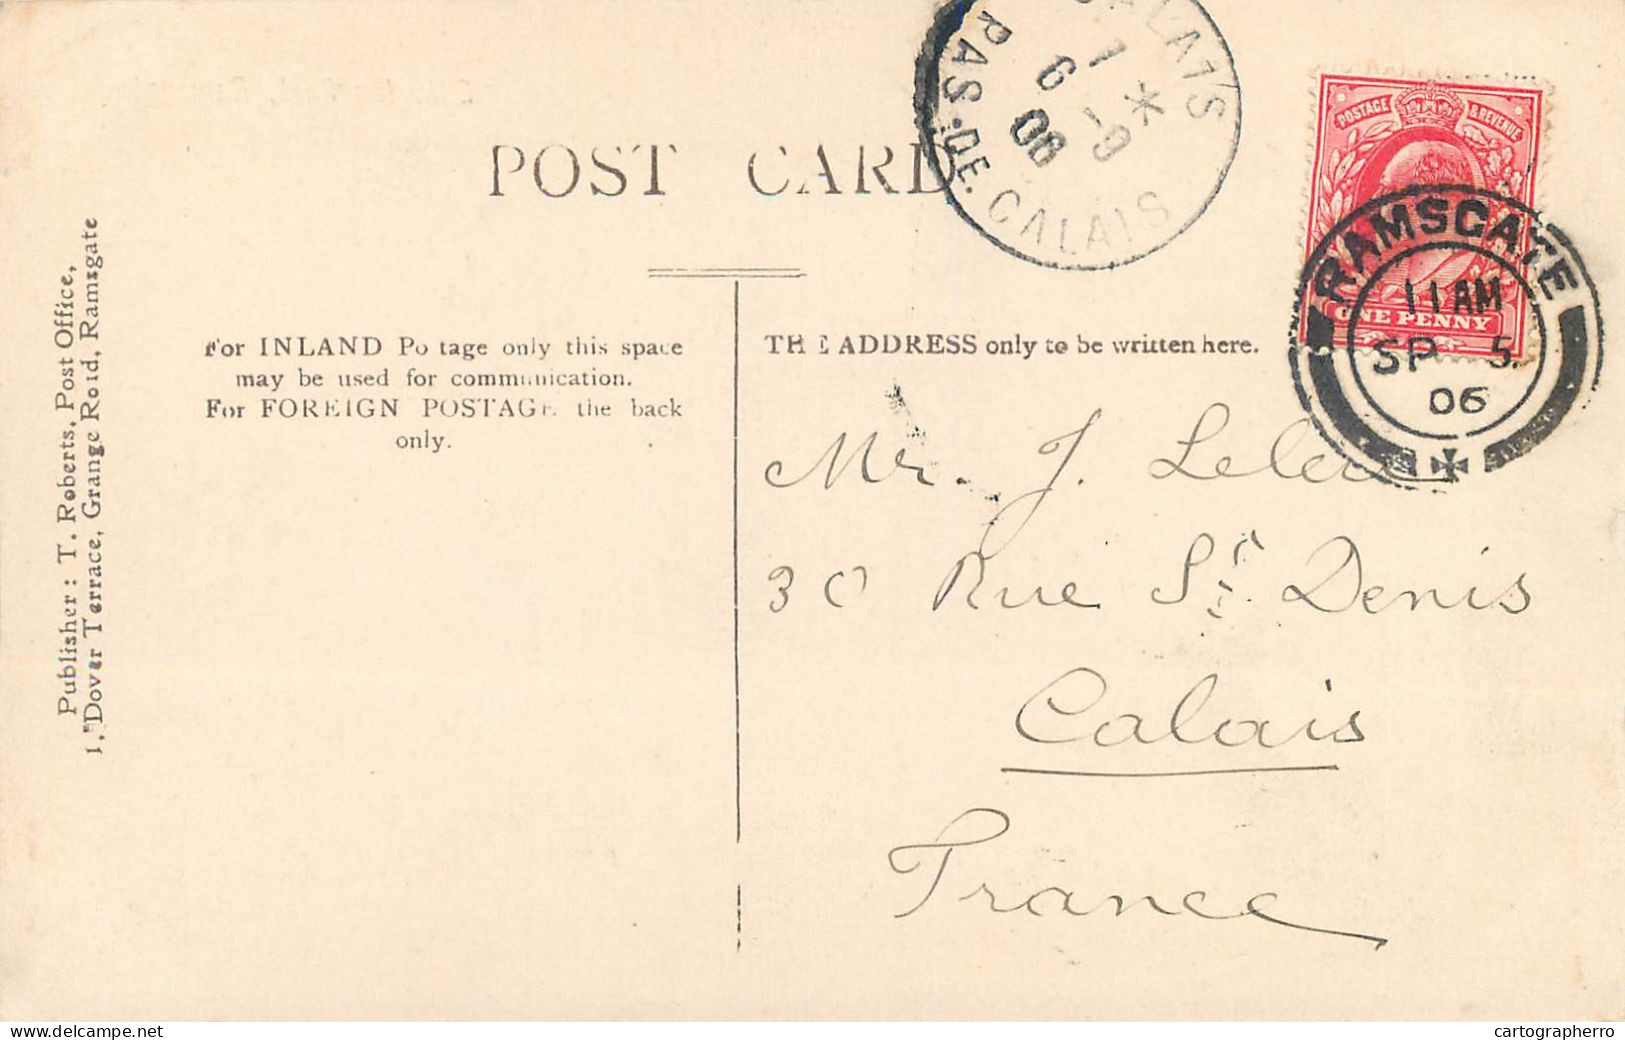 POST CARD
CALAIS
1 * -9
6
06
PAS-DE-CALAIS
POSTAGE & REVENUE
ONE PENNY
RAMSGATE
11 AM
SP 5
06
Publisher: T. Roberts, Post Office,
1, Dover Terrace, Grange Road, Ramsgate
For INLAND Po tage only this space
may be used for communication.
For FOREIGN POSTAGE the back
only.
THE ADDRESS only to be written here.
Mr. J.
30 Rue St Denis
Calais
France
delcampe.net
cartographerro